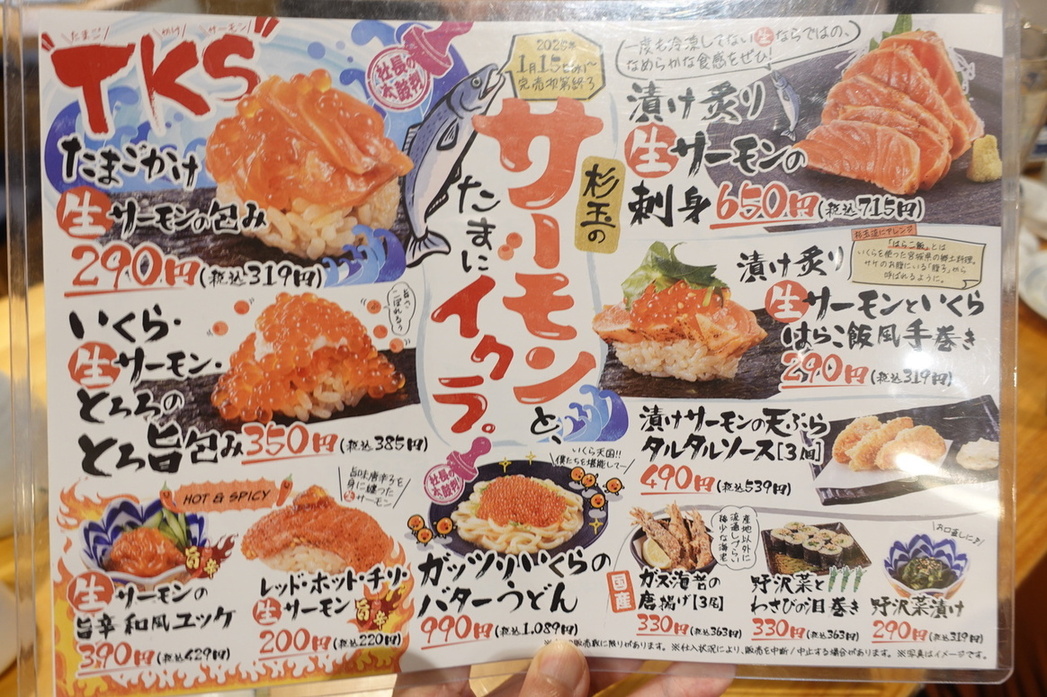 たまご かけ サーモン
"TKS"
たまごかけ
生サーモンの包み
290円(税込319円)
社長の
太鼓判
2026年
1月15日(木)~
完売次第終了
杉玉の
サーモンと、
たまに
イクラ。
一度も冷凍してない生ならではの、
なめらかな食感をぜひ!
漬け炙り
生サーモンの
刺身 650円(税込715円)
いくら・
生サーモン・
とろろの
とろ旨包み 350円(税込385円)
杉玉流にアレンジ
「はらこ飯」とは
いくらを使った宮城県の郷土料理。
サケのお腹にいる「腹子」から
呼ばれるように。
漬け炙り
生サーモンといくら
はらこ飯風手巻き
290円(税込319円)
漬けサーモンの天ぷら
タルタルソース[3個]
490円(税込539円)
HOT & SPICY
旨味唐辛子を
身に纏った
生サーモン
旨辛
生サーモンの
旨辛 和風ユッケ
390円(税込429円)
レッド・ホット・チリ・
生サーモン
旨辛
200円(税込220円)
社長の
太鼓判
いくら天国!!
僕たちを堪能して〜
ガッツリいくらの
バターうどん
990円(税込1,089円)
産地以外に
流通しづらい
稀少な海老
国産
ガス海老の
唐揚げ[3尾]
330円(税込363円)
野沢菜と
わさびの泪巻き
330円(税込363円)
お口直しに♪
野沢菜漬け
290円(税込319円)
販売数に限りがあります。※仕入状況により、販売を中断/中止する場合があります。※写真はイメージです。